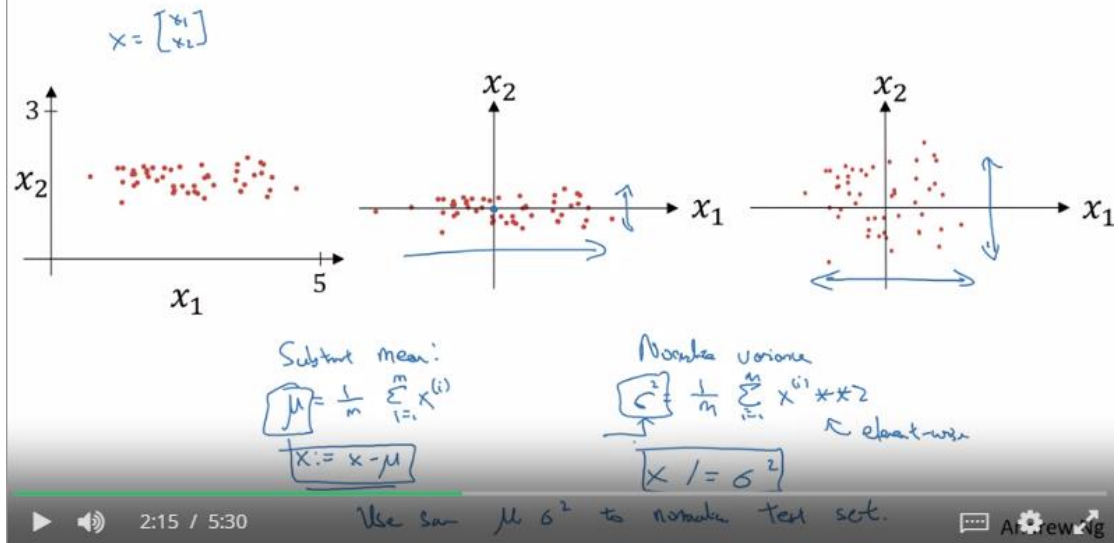 x = [x1
x2]
3
x2
x1
5
x2
x1
x2
x1
Subtract mean:
μ = 1/m Σ i=1 m x(i)
x := x - μ
Normalize variance
σ² = 1/m Σ i=1 m x(i) **2
element-wise
x /= σ²
Use same μ σ² to normalize test set.
2:15 / 5:30
Andrew Ng